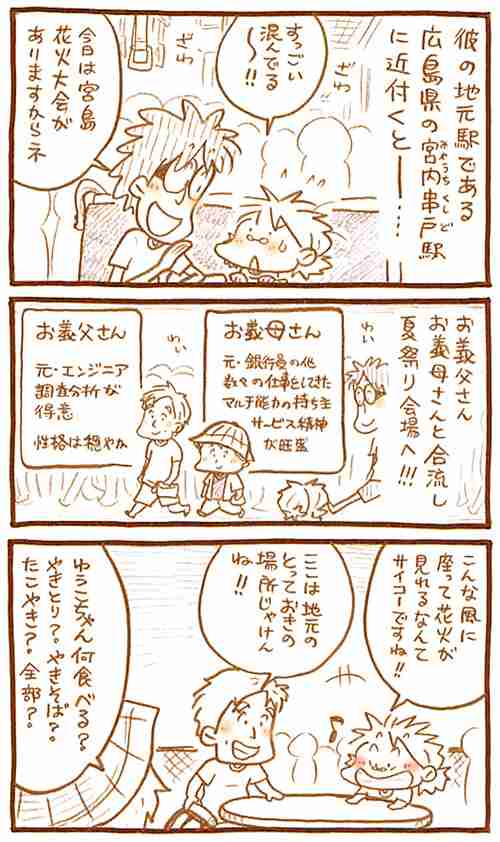 彼の地元駅である
広島県の宮内串戸駅
みやうちくしど
に近付くと━━……
ざわ
ざわ
すっごい
混んでる
〜〜!!
今日は宮島
花火大会が
ありますからネ
お義父さん
お義母さんと合流し
夏祭り会場へ!!!
わい
お義母さん
元・銀行員の他
数々の仕事をしてきた
マルチ能力の持ち主
サービス精神
が旺盛
わい
お義父さん
元・エンジニア
調査分析が
得意
性格は穏やか
こんな風に
座って花火が
見れるなんて
サイコーですね!!
ここは地元の
とっておきの
場所じゃけん
ね!!
ゆうこちゃん何食べる?
やきとり?やきそば?
たこやき?全部?